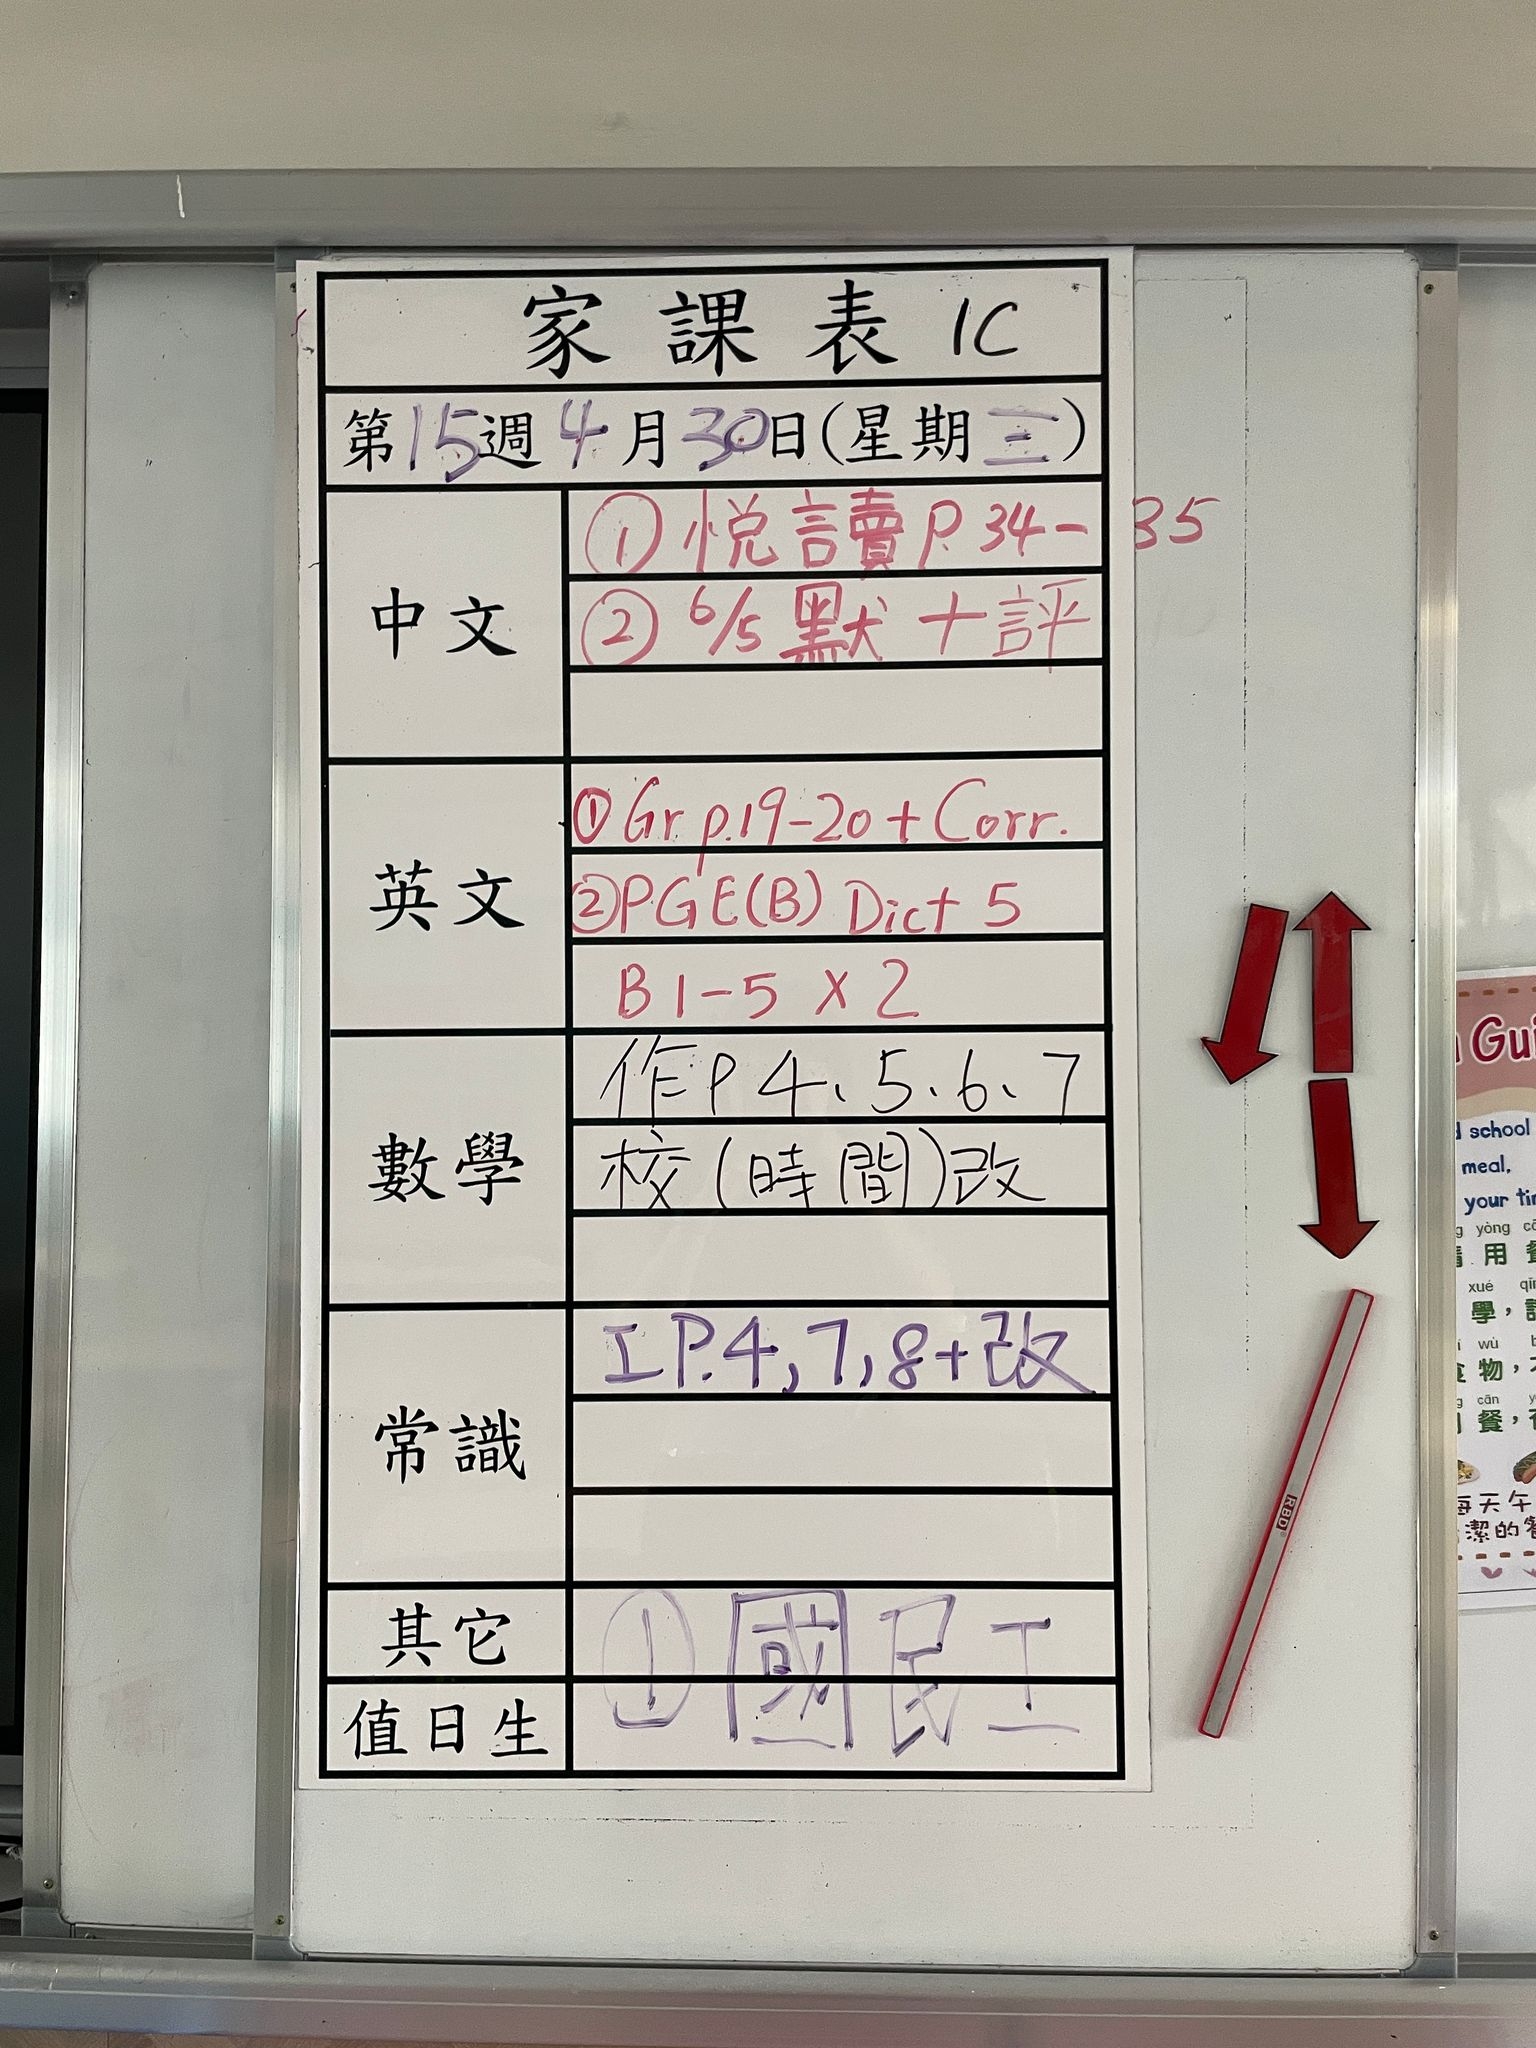 家課表 1C
第15週4月30日(星期三)
中文
① 悅讀 P.34-35
② 6/5 默+評
英文
① Gr p.19-20 + Corr.
② PGE(B) Dict 5
B 1-5 x 2
數學
作P 4、5、6、7
校(時間)改
常識
工P.4,7,8+改
其它
① 國民工
值日生
RBD
Gui
school
meal,
your tim
yòng
用
xué
學,
wù
物,
cān
餐,
每天午
潔的